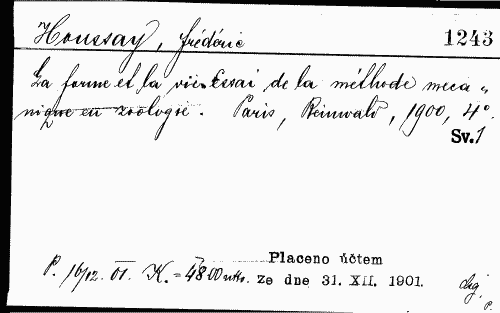 Houssay, Frédéric 1243
La forme et la vie. Essai de la méthode meca„
nique en zoologie. Paris, Reinwald, 1900, 4°.
Sv. 1
Placeno účtem
P. 16/12. 01. K. = 48·00 ze dne 31. XII. 1901.